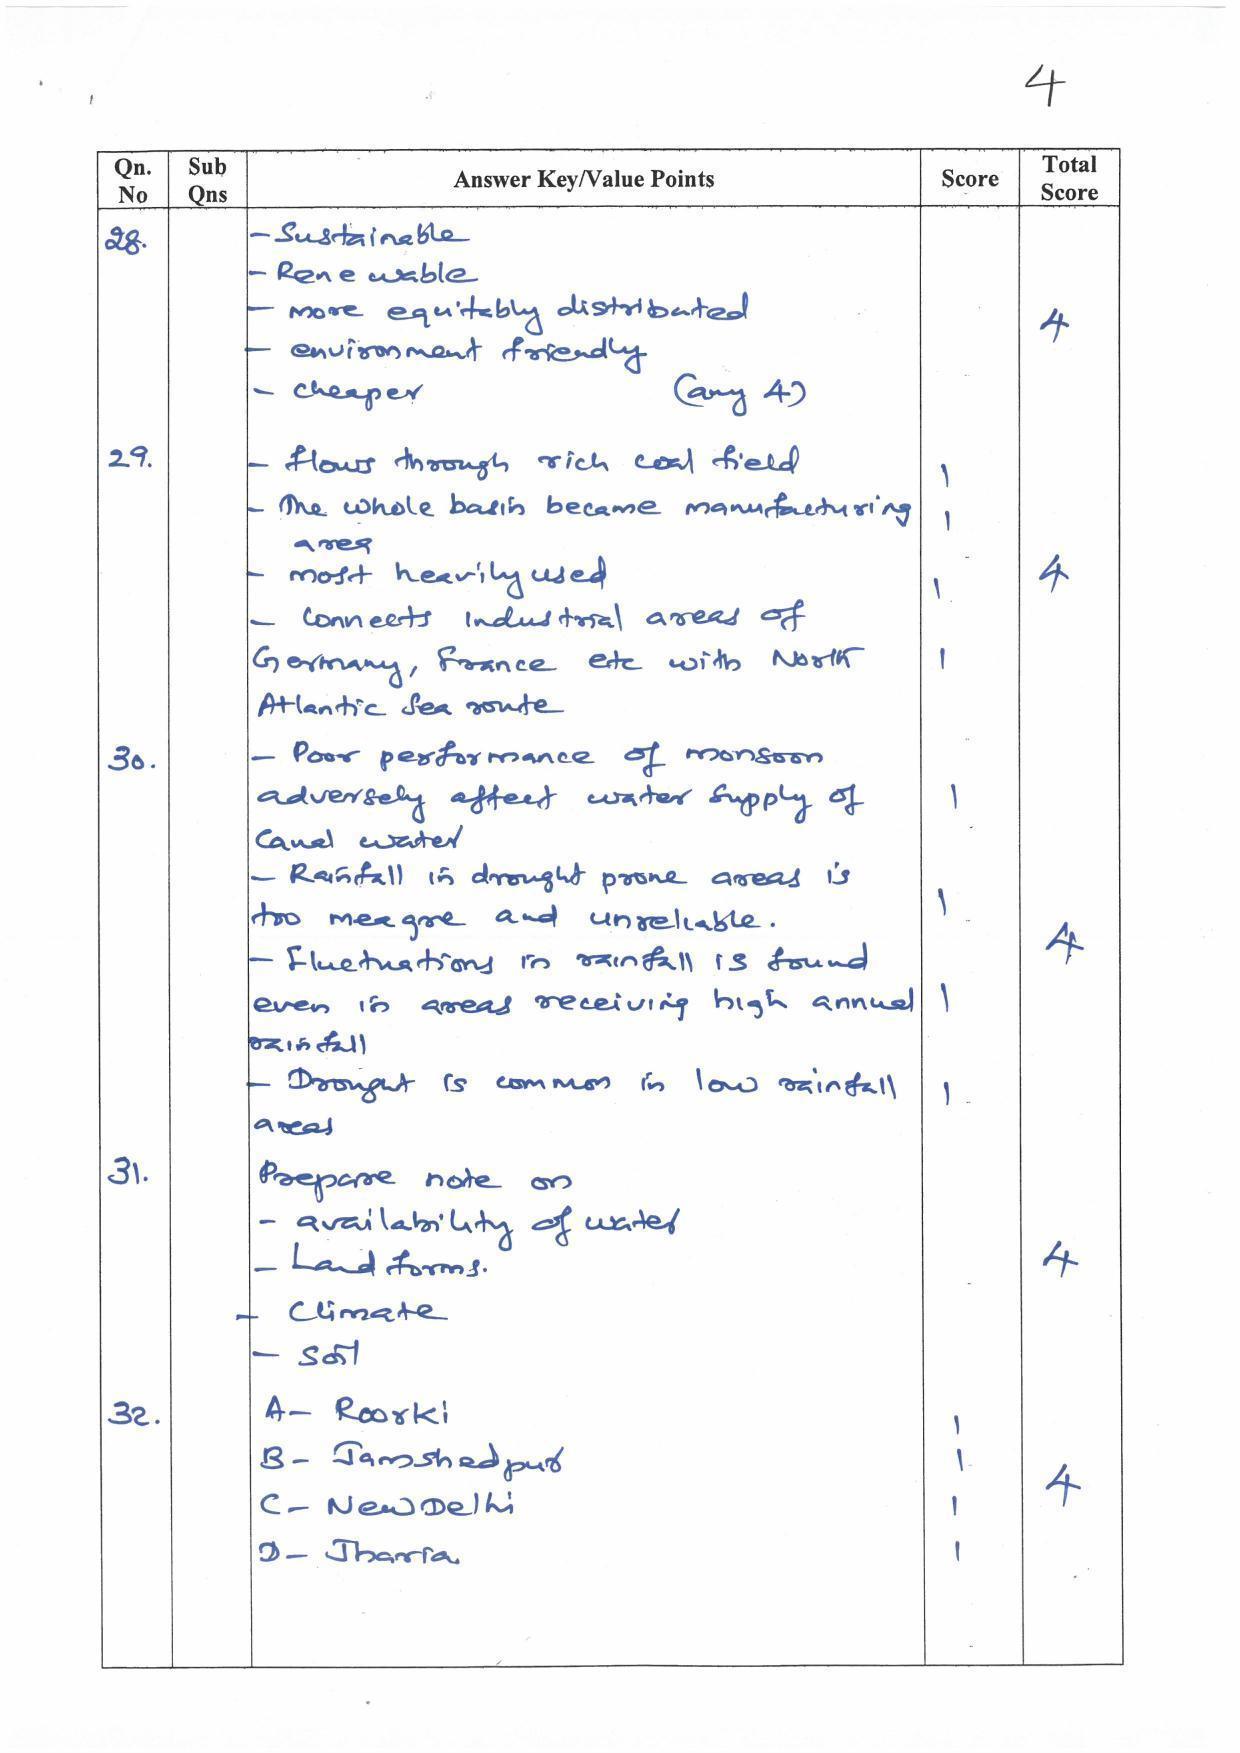 4
Qn. No Sub Qns Answer Key/Value Points Score Total Score
28. - Sustainable
- Renewable
- more equitably distributed 4
- environment friendly
- cheaper (any 4)
29. - flows through rich coal field 1
- The whole basin became manufacturing 1
area
- most heavily used 1 4
- Connects industrial areas of
Germany, France etc with North 1
Atlantic Sea route
30. - Poor performance of monsoon
adversely affect water supply of 1
Canal water
- Rainfall in drought prone areas is
too meagre and unreliable. 1
- Fluctuations in rainfall is found 4
even in areas receiving high annual 1
rainfall
- Drought is common in low rainfall 1
areas
31. Prepare note on
- availability of water
- Land forms. 4
- Climate
- Soil
32. A- Roorki 1
B- Jamshedpur 1
C- New Delhi 1 4
D- Jharia 1